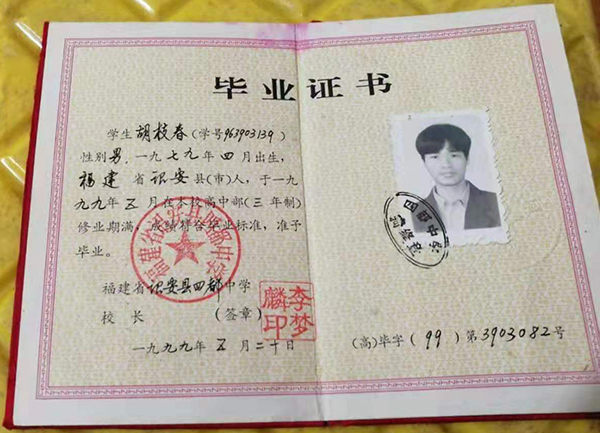 毕业证书
学生胡枝春(学号963903139)
性别男,一九七九年四月出生,
福建省诏安县(市)人,于一九
九九年五月在本校高中部(三年制)
修业期满,成绩符合毕业标准,准予
毕业。
福建省诏安县四都中学
校长 (签章)
李梦麟印
一九九九年五月二十日
(高)毕字(99)第3903082号